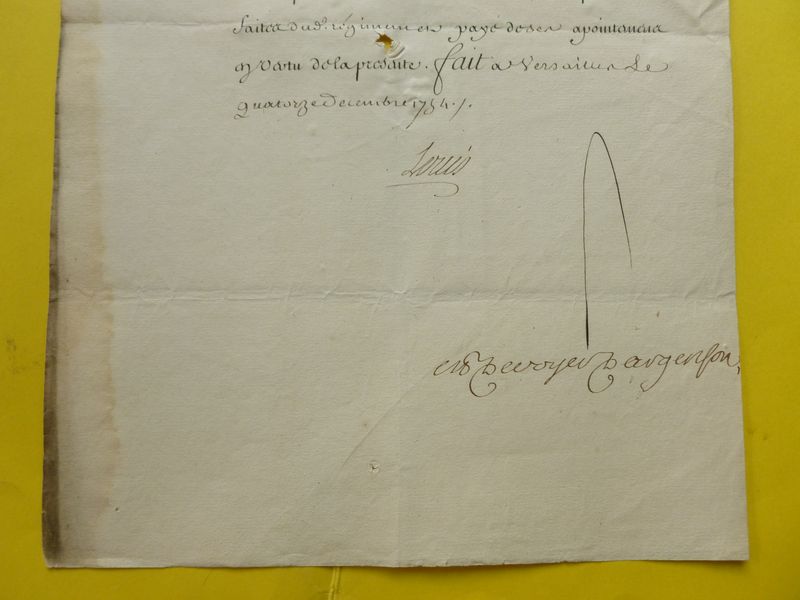 faites dud. régiment et payé de ses apointemens
en vertu de la presente. fait a Versailles Le
quatorze Decembre 1754./.
Louis
M P de voyer D argenson,